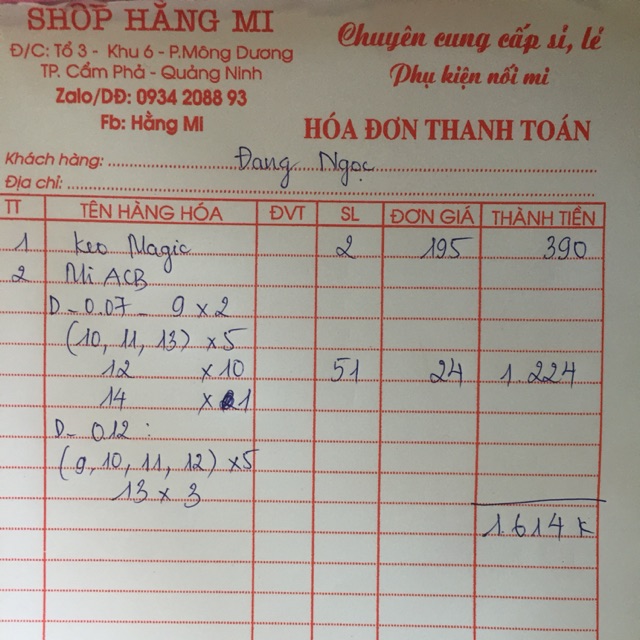 SHOP HẰNG MI
Đ/C: Tổ 3 - Khu 6 - P.Mông Dương
TP. Cẩm Phả - Quảng Ninh
Zalo/DĐ: 0934 2088 93
Fb: Hằng MI
Chuyên cung cấp sỉ, lẻ
Phụ kiện nối mi
HÓA ĐƠN THANH TOÁN
Khách hàng: Đang Ngọc
Địa chỉ:
TT TÊN HÀNG HÓA ĐVT SL ĐƠN GIÁ THÀNH TIỀN
1 Keo Magic 2 195 390
2 Mi ACB
D - 0.07 - 9 x 2
(10, 11, 13) x 5
12 x 10 51 24 1.224
14 x 1
D - 012 :
(9, 10, 11, 12) x 5
13 x 3
1.614 k